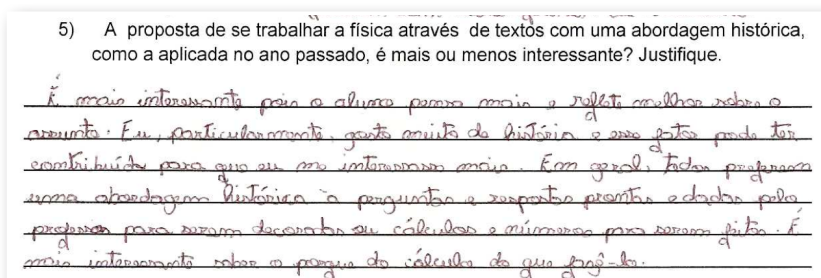 5) A proposta de se trabalhar a física através de textos com uma abordagem histórica,
como a aplicada no ano passado, é mais ou menos interessante? Justifique.
É mais interessante pois o aluno pensa mais e reflete melhor sobre o
assunto. Eu, particularmente, gosto muito de história e esse fator pode ter
contribuído para que eu me interessasse mais. Em geral, todos preferem
uma abordagem histórica à perguntas e respostas prontas e dadas pelo
professor para serem decoradas ou cálculos e números pra serem feitos. É
mais interessante saber o porque do cálculo do que fazê-lo.